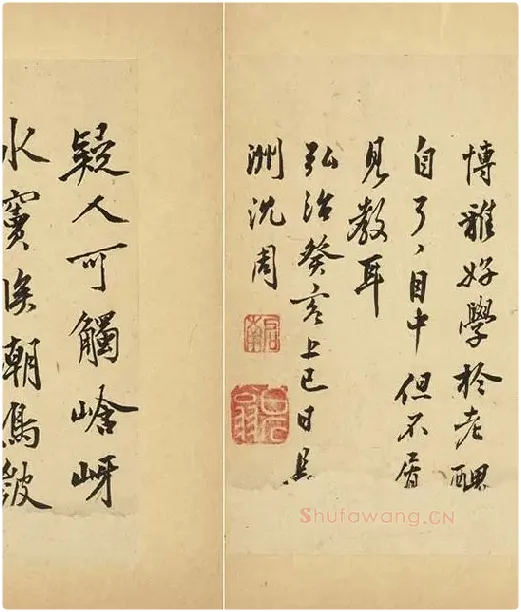 博雅好學於老醜
自了、目中但不屑
見教耳
弘治癸亥上巳日長
洲沈周
啓南
白石翁
疑人可觸嶮岈
水竇朝
Shufawang.CN